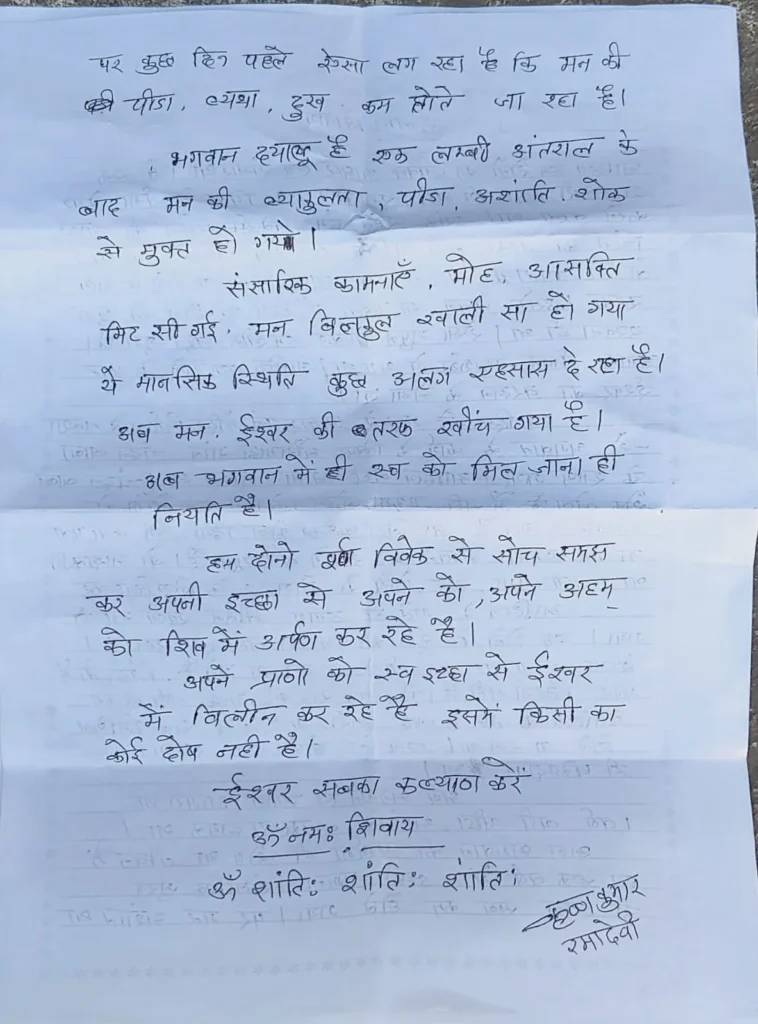 पर कुछ दिन पहले ऐसा लग रहा है कि मन की
पीडा, व्यथा, दुख कम होते जा रहा है।
भगवान दयालू है एक लम्बी अंतराल के
बाद मन की व्याकुलता, पीडा, अशांति, शोक
से मुक्त हो गये।
संसारिक कामनाएँ, मोह, आसक्ति
मिट सी गई, मन बिलकुल खाली सा हो गया
ये मानसिक स्थिति कुछ अलग एहसास दे रहा है।
अब मन, ईश्वर की तरफ खींच गया है।
अब भगवान में ही स्व को मिल जाना ही
नियति है।
हम दोनो पूर्ण विवेक से सोच समझ
कर अपनी इच्छा से अपने को, अपने अहम्
को शिव में अर्पण कर रहे है।
अपने प्राणो को स्व इच्छा से ईश्वर
में विलीन कर रहे है इसमें किसी का
कोई दोष नही है।
ईश्वर सबका कल्याण करें
ॐ नमः शिवाय
ॐ शांतिः शांतिः शांतिः
कृष्ण कुमार
रमादेवी